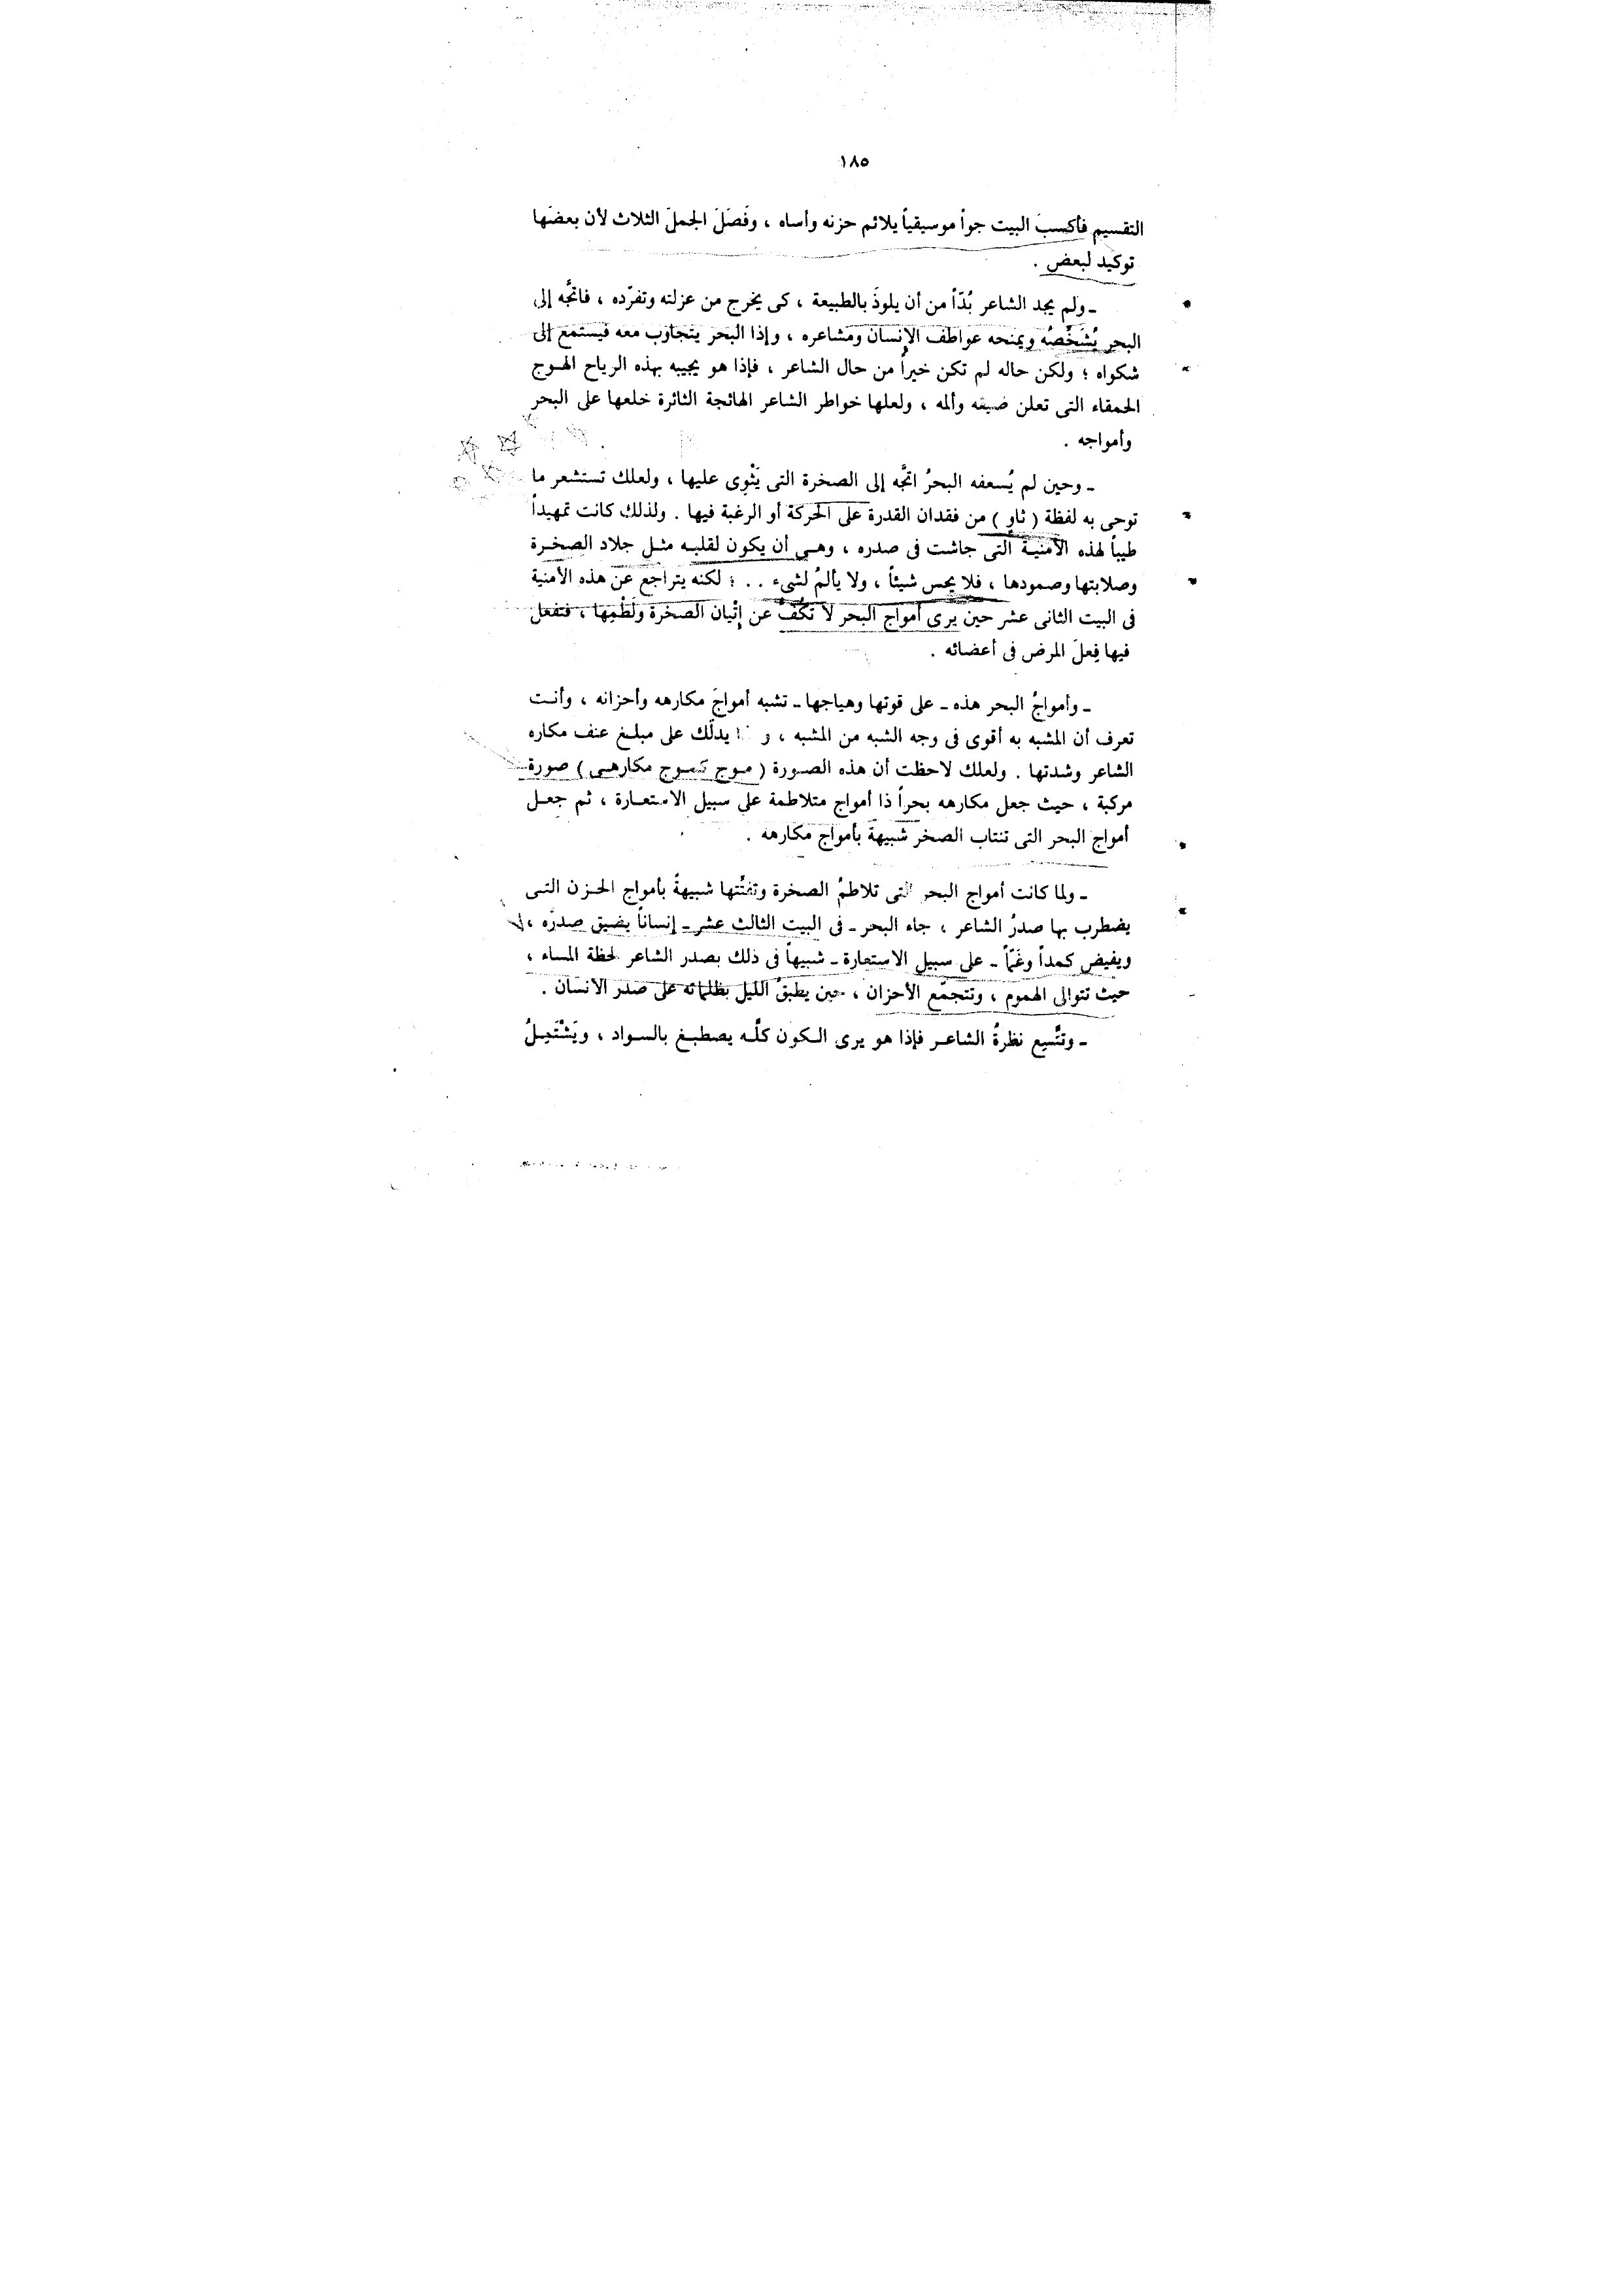 ١٨٥
التقسيم فأكسبَ البيت جواً موسيقياً يلائم حزنه وأساه ، وفَصَلَ الجملَ الثلاث لأن بعضَها
توكيد لبعض .
ـ ولم يجد الشاعر بُدّاً من أن يلوذَ بالطبيعة ، كى يخرج من عزلته وتفرّده ، فاتجَّه إلى
البحر يُشَخِّصُه ويمنحه عواطف الإنسان ومشاعره ، وإذا البحر يتجاوب معه فيستمع إلى
شكواه ؛ ولكن حاله لم تكن خيراً من حال الشاعر ، فإذا هو يجيبه بهذه الرياح الهـوج
الحمقاء التى تعلن ضيقه وألمه ، ولعلها خواطر الشاعر الهائجة الثائرة خلعها على البحر
وأمواجه .
ـ وحين لم يُسعفه البحرُ اتجَّه إلى الصخرة التى يَثْوِى عليها ، ولعلك تستشعر ما
توحى به لفظة ( ثاوٍ ) من فقدان القدرة على الحركة أو الرغبة فيها . ولذلك كانت تمهيداً
طيباً لهذه الأمنيـة التى جاشت فى صدره ، وهـى أن يكون لقلبـه مثـل جلاد الصخـرة
وصلابتها وصمودها ، فلا يحس شيئاً ، ولا يألمُ لشىء . . ؛ لكنه يتراجع عن هذه الأمنية
فى البيت الثانى عشر حين يرى أمواج البحر لا تكُفُّ عن إتْيان الصخرة ولَطْمِها ، فتفعل
فيها فِعلَ المرض فى أعضائه .
ـ وأمواجُ البحر هذه ـ على قوتها وهياجها ـ تشبه أمواجَ مكارهه وأحزانه ، وأنـت
تعرف أن المشبه به أقوى فى وجه الشبه من المشبه ، و ا يدلّك على مبلـغ عنف مكاره
الشاعر وشدتها . ولعلك لاحظت أن هذه الصـورة ( مـوج كمـوج مكارهـى ) صورة
مركبة ، حيث جعل مكارهه بحراً ذا أمواج متلاطمة على سبيل الاستعـارة ، ثم جعـل
أمواج البحر التى تنتاب الصخر شبيهةً بأمواج مكارهه .
ـ ولما كانت أمواج البحر التى تلاطمُ الصخرة وتفتّتها شبيهةً بأمواج الحـزن التـى
يضطرب بها صدرُ الشاعر ، جاء البحر ـ فى البيت الثالث عشر ـ إنساناً يضيق صدرُه ،
ويفيض كمداً وغَمّاً ـ على سبيل الاستعارة ـ شبيهاً فى ذلك بصدر الشاعر لحظة المساء ،
حيث تتوالى الهموم ، وتتجمّع الأحزان ، حين يطبقُ الليل بظلماته على صدر الانسان .
ـ وتتَّسِع نظرةُ الشاعـر فإذا هو يرى الـكون كلَّـه يصطبـغ بالسـواد ، ويَشْتَمِـلُ